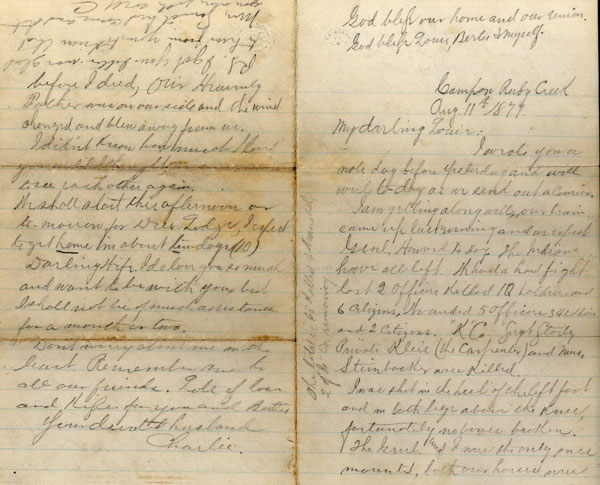 God bless our home and our union.
God bless Louis Bertie & myself.
Camp on Ruby Creek
Aug. 11th/1877.
My darling Louie:
I wrote you a
note day before yesterday and will
write to-day as we send out a Courier.
I am getting along well, our train
came up last evening and we expect
Genl. Howard to-day. The Indians
have all left. We had a hard fight
lost 2 Officers Killed 17 soldiers and
6 Citizens. Wounded 5 Officers 34 soldiers
and 2 Citizens. "K" Co. Sergt.
Private Kleis (the Carpenter) and Mus.
Steinbacker were Killed.
I was shot in the heel of the left foot
and in both legs above the Knee
fortunately no bones broken.
The Genl. and I were the only ones
mounted, both our horses were
before I died, Our Heavenly
Father was on our side and the wind
changed and blew away from us.
I didn't know how much I loved
you until I thought
to see each other again.
We shall start this afternoon or
to-morrow for Deer Lodge, I expect
to get home in about ten days (10)
Darling Wife I do love you so much
and want to be with you but
I shall not be of much assistance
for a month or two.
Don't worry about me in the
least. Remember me to
all our friends. Lots of love
and Kisses for you and Bertie
Your devoted husband
Charlie.